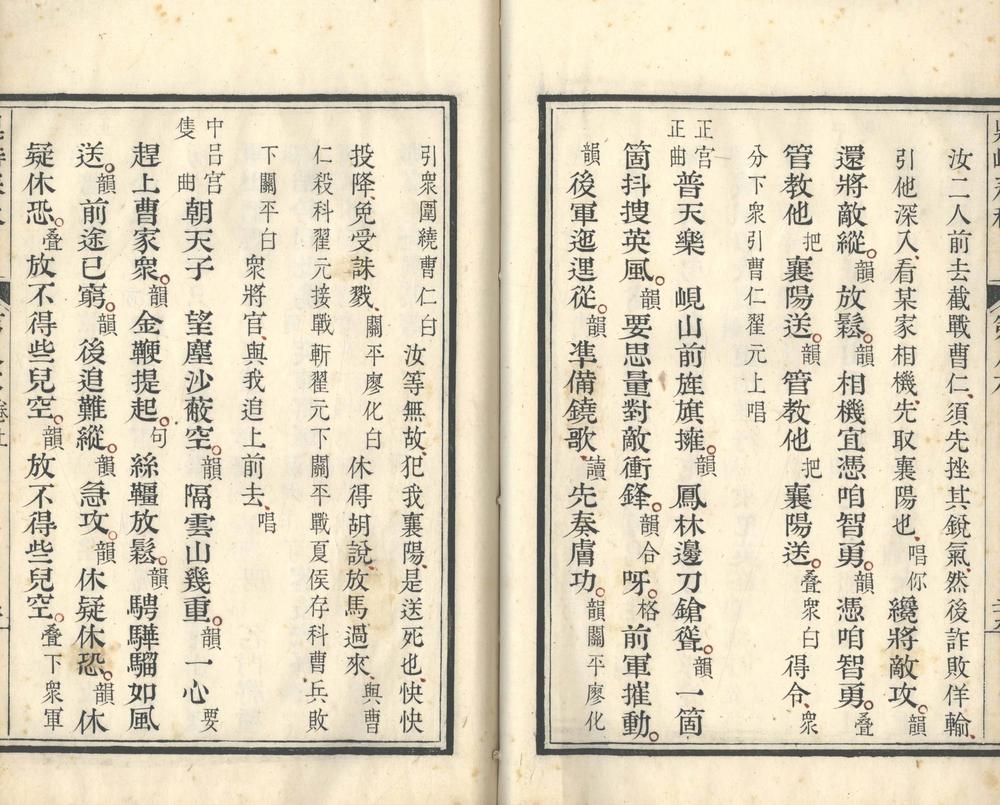 汝二人前去截戰曹仁、須先挫其銳氣、然後詐敗佯輸、
引他深入、看某家相機、先取襄陽也、唱你纔將敵攻。韻
還將敵縱。韻放鬆。韻相機宜憑咱智勇。韻憑咱智勇。叠
管教他把襄陽送。韻管教他把襄陽送。叠衆白得令、衆
分下衆引曹仁翟元上唱
正宮正曲普天樂 峴山前旌旗擁。韻鳳林邊刀鎗聳。韻一箇
箇抖搜英風。韻要思量對敵衝鋒。韻合呀。格前軍摧動。
韻後軍迤逞從。韻準備鐃歌、讀先奏膚功。韻關平廖化
引衆圍繞曹仁白汝等無故、犯我襄陽、是送死也、快快
投降、免受誅戮、關平廖化白休得胡說、放馬過來、與曹
仁殺科翟元接戰斬翟元下關平戰夏侯存科曹兵敗
下關平白衆將官、與我追上前去、唱
中呂宮隻曲朝天子 望塵沙蔽空。韻隔雲山幾重。韻一心要
趕上曹家衆。韻金鞭提起。句絲韁放鬆。韻騁驊騮如風
送。韻前途已窮。韻後追難縱。韻急攻。韻休疑休恐。韻休
疑休恐。叠放不得些兒空。韻放不得些兒空。叠下衆軍